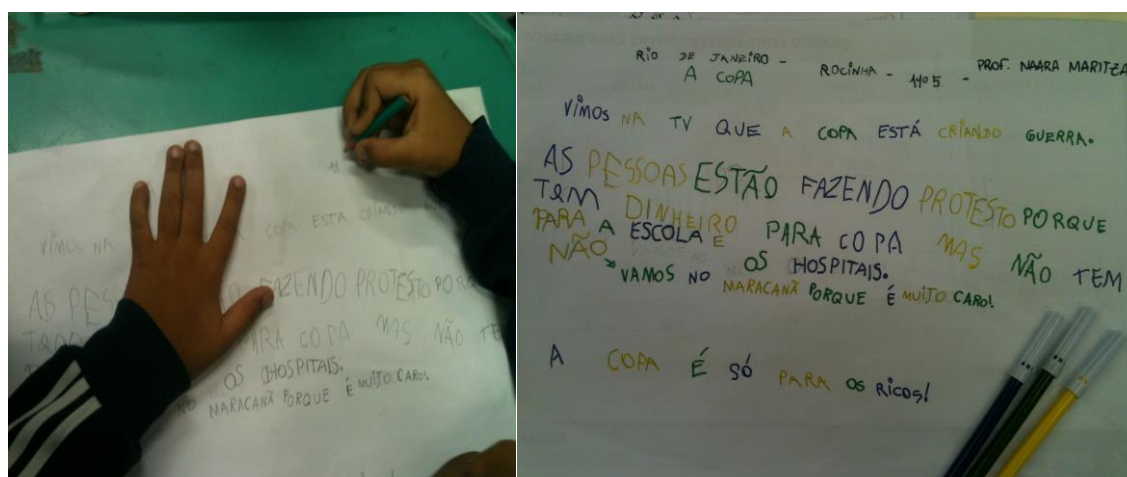 VIMOS NA COPA ESTA
AS FAZENDO PROTESTO
PARA COPA MAS NÃO TE
OS HOSPITAIS.
NO MARACANÃ PORQUE É MUITO CARO!
RIO DE JANEIRO - ROCINHA - - PROF. NAARA MARITZA
A COPA
VIMOS NA TV QUE A COPA ESTÁ CRIANDO GUERRA.
AS PESSOAS ESTÃO FAZENDO PROTESTO PORQUE
TEM DINHEIRO PARA COPA MAS NÃO TEM
PARA A ESCOLA E OS HOSPITAIS.
NÃO VAMOS NO MARACANÃ PORQUE É MUITO CARO!
A COPA É SÓ PARA OS RICOS!